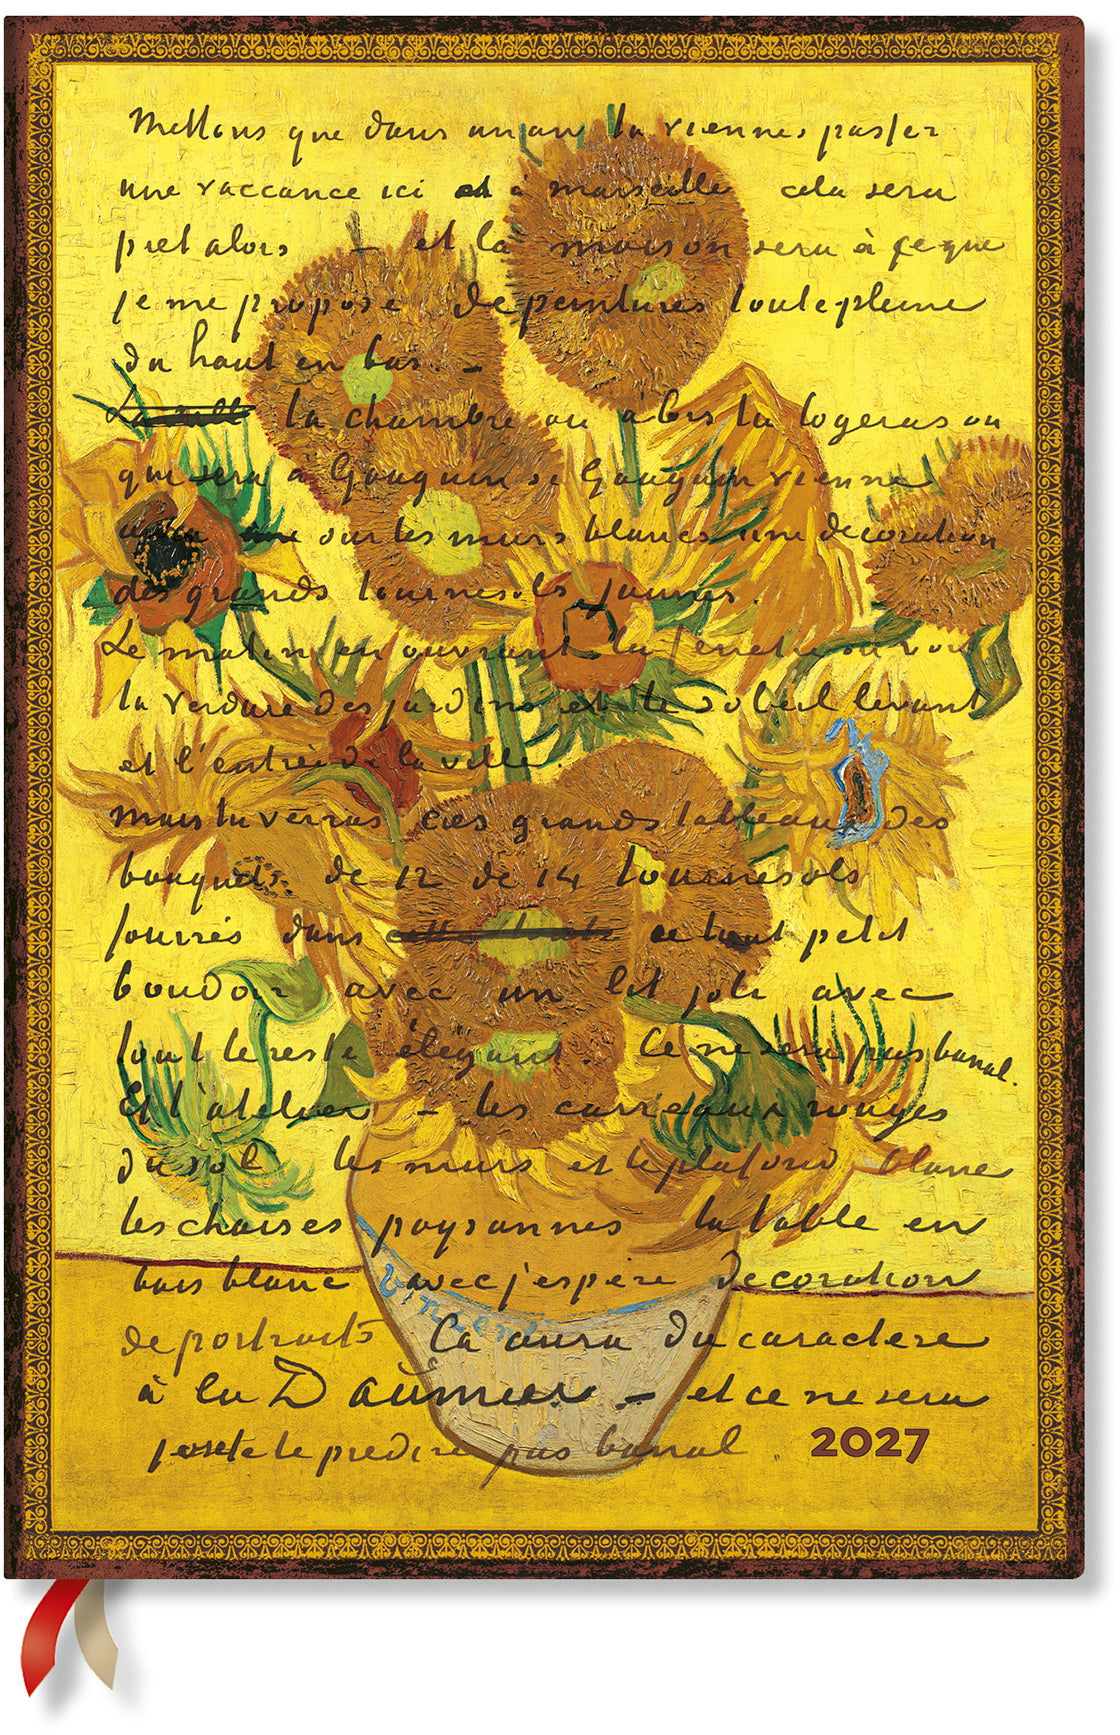 Mettons que dans un an tu viennes passer
une vaccance ici et à marseille cela sera
pret alors – et la maison sera à ce que
je me propose de peintures toute pleine
du haut en bas. –
la chambre ou alors tu logeras ou
que sera à Gauguin si Gauguin vienne
aura sur les murs blancs une decoration
des grands tournesols jaunes.
Le matin en ouvrant la fenetre on voit
la verdure des jardins et le soleil levant
et l'entrée de la ville
mais tu verras ces grands tableaux des
bouquets de 12 de 14 tournesols
fourrés dans ce tout petit
boudoir avec un lit joli avec
tout le reste élégant. Ce ne sera pas banal.
Et l'atelier – les carreaux rouges
du sol les murs et le plafond blancs
les chaises paysannes la table en
bois blanc avec j'espère decoration
de portraits Ca aura du caractere
à la Daumier – et ce ne sera
je te le predire pas banal
Vincent
2027